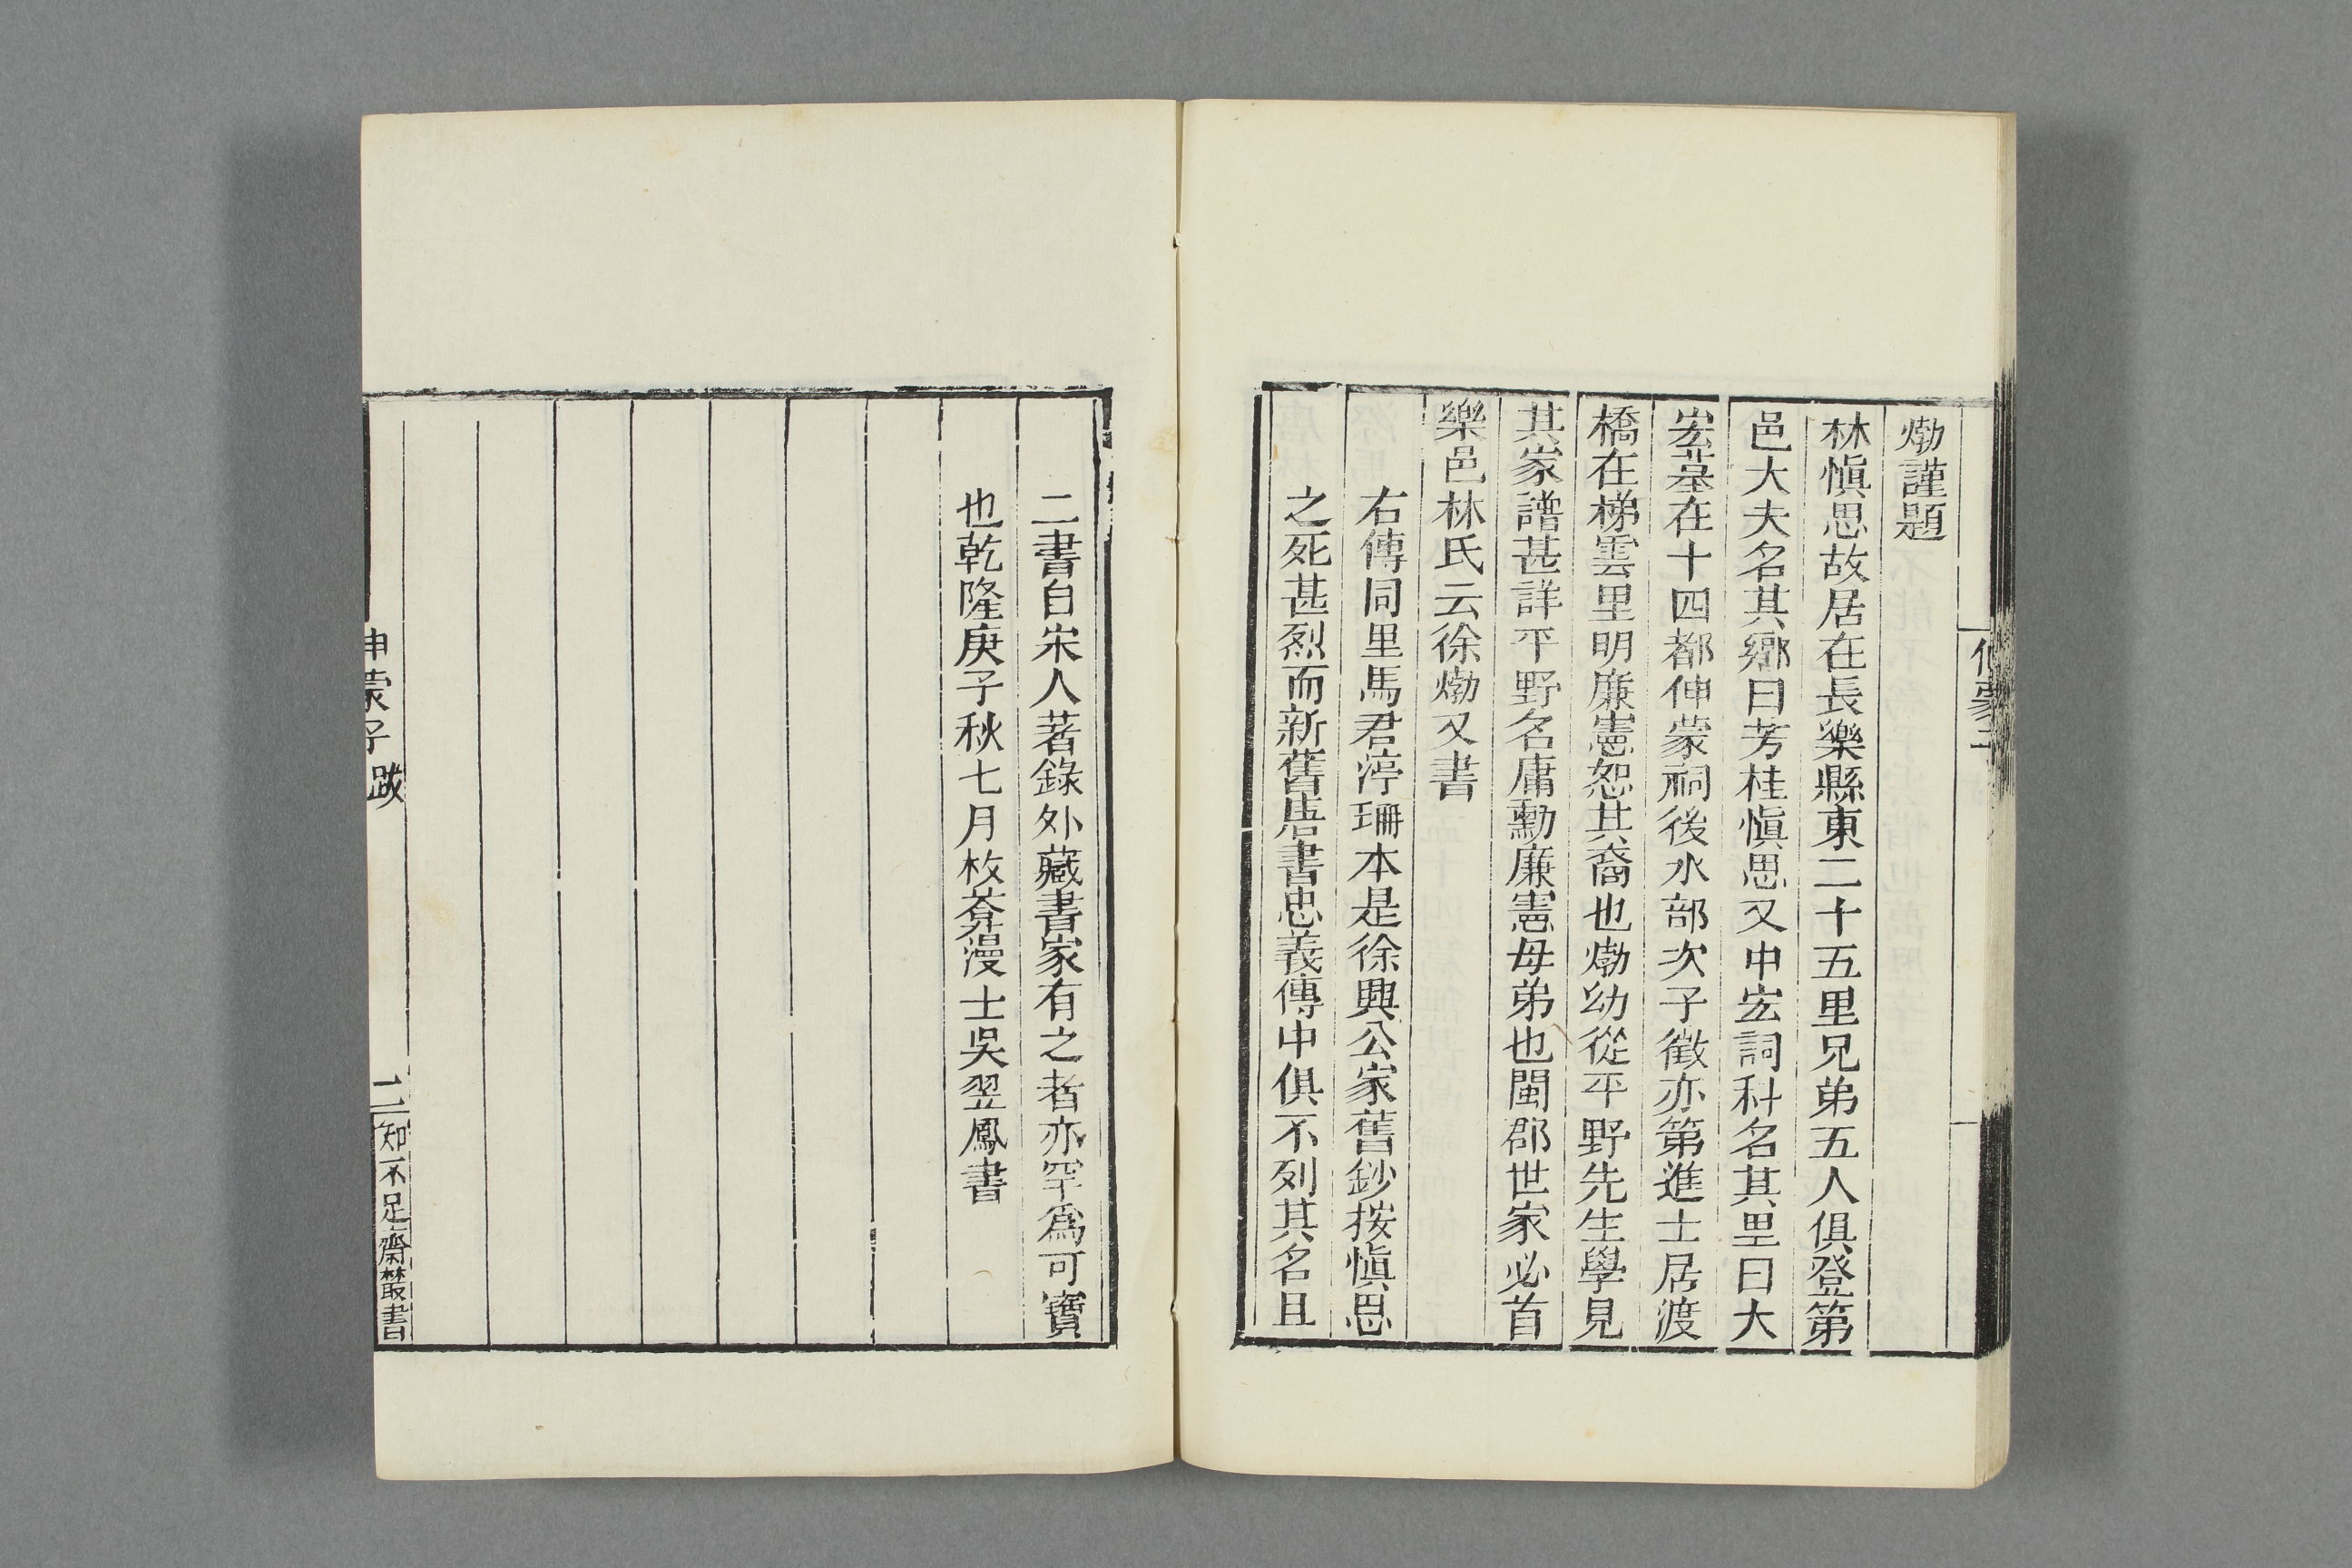 㶿謹題
林愼思故居在長樂縣東二十五里兄弟五人俱登第
邑大夫名其鄉曰芳桂愼思又中宏詞科名其里曰大
宏墓在十四都伸蒙祠後水部次子徵亦第進士居渡
橋在梯雲里明廉憲恕其裔也㶿幼從平野先生學見
其家譜甚詳平野名庸勳廉憲母弟也閩郡世家必首
樂邑林氏云徐㶿又書
右傳同里馬君渟珊本是徐興公家舊鈔按愼思
之死甚烈而新舊唐書忠義傳中俱不列其名且
伸蒙子
二書自宋人著錄外藏書家有之者亦罕爲可寶
也乾隆庚子秋七月枚菴漫士吳翌鳳書
伸蒙子跋
二
知不足齋叢書